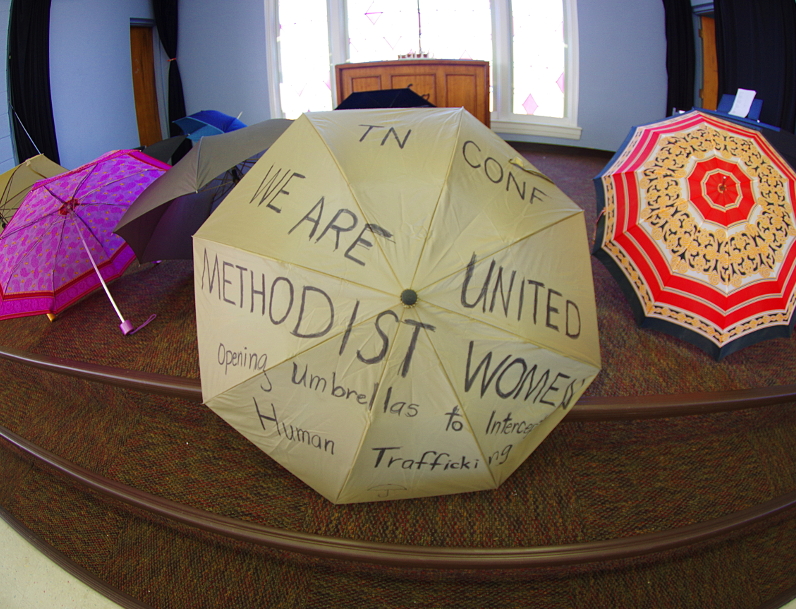 TN CONF
WE ARE UNITED
METHODIST WOMEN
Opening Umbrellas to Intercept
Human Trafficking